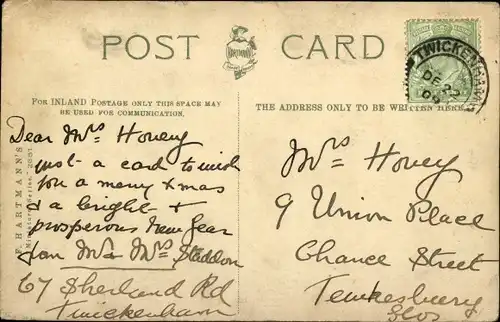 POST CARD
HARTMANN
TWICKENHAM
DE
FOR INLAND POSTAGE ONLY THIS SPACE MAY
BE USED FOR COMMUNICATION.
THE ADDRESS ONLY TO BE WRITTEN HERE.
F. HARTMANN'S
Miniature Series.
Dear Mrs Hovey
just a card to wish
you a merry Xmas
& a bright &
prosperous New Year
from Mr & Mrs Staddon
67 Sherland Rd
Twickenham
Mrs Hovey
9 Union Place
Chance Street
Tewkesbury
Glos